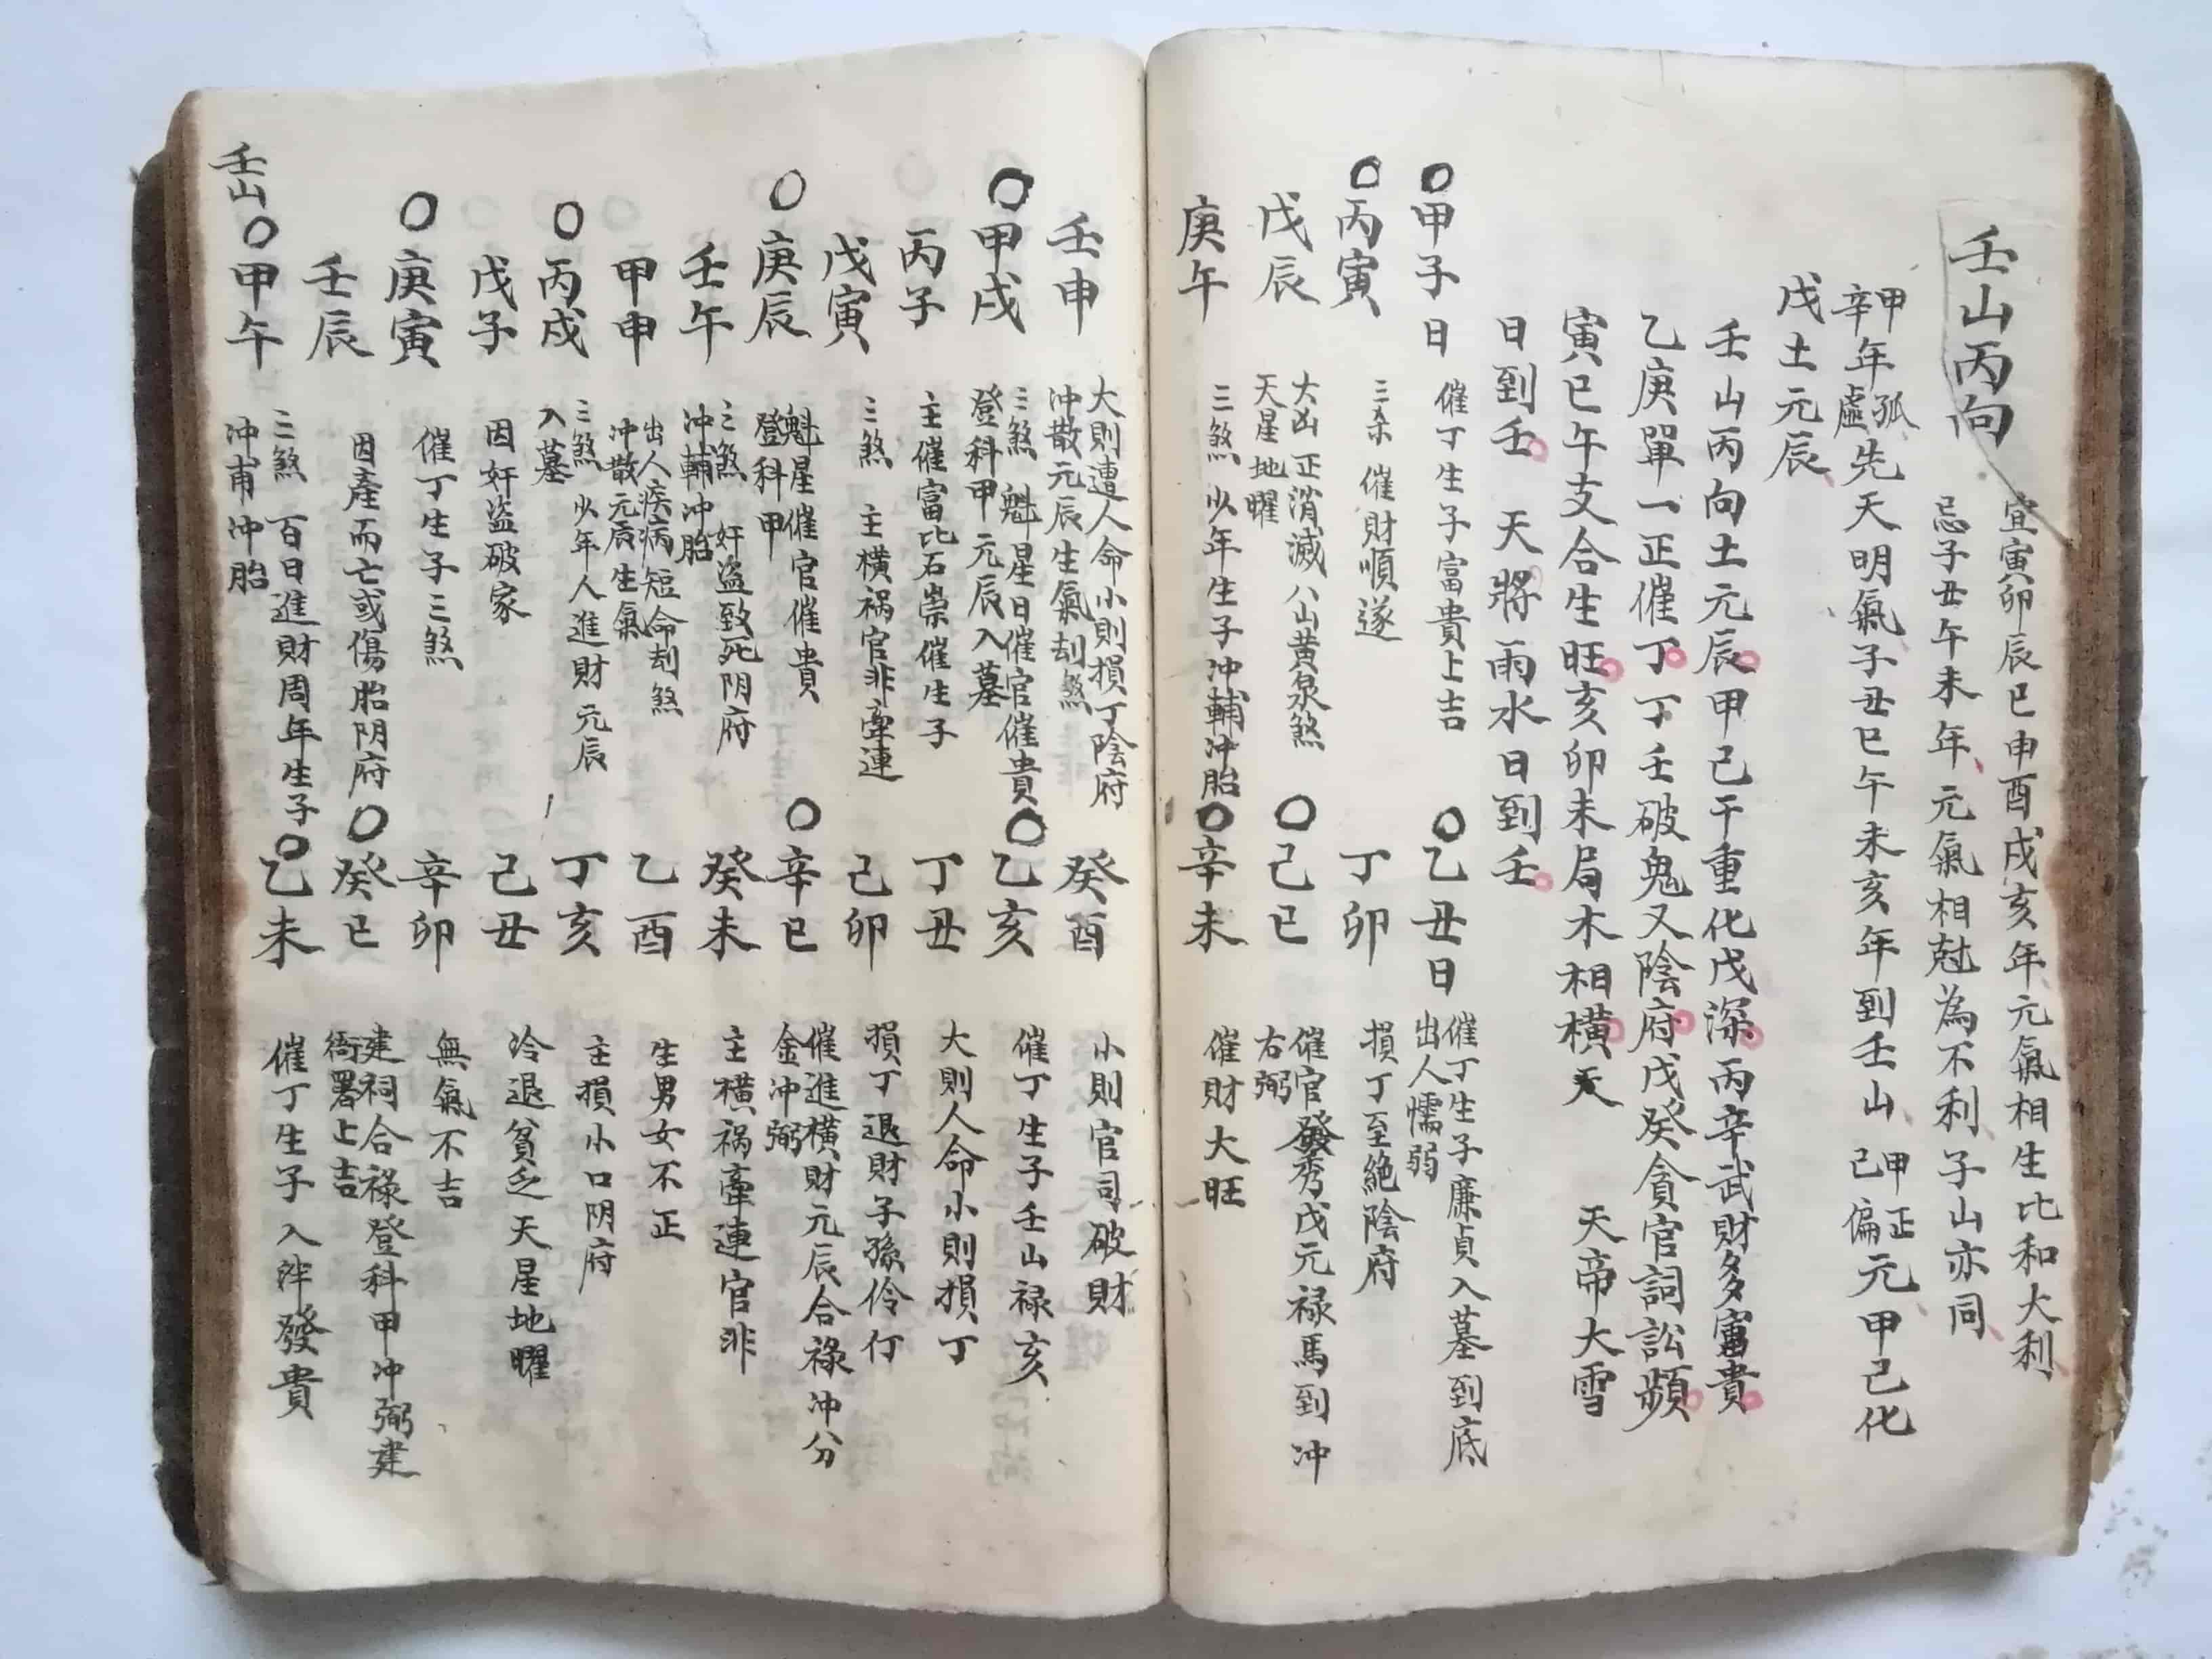 壬山丙向
宜寅卯辰巳申酉戌亥年元氣相生比和大利
忌子丑午未年元氣相尅為不利子山亦同
甲辛年孤虛先天明氣子丑巳午未亥年到壬山甲正己偏元甲己化
戊土元辰
壬山丙向土元辰甲己干重化戊深丙辛武財多富貴
乙庚單一正催丁丁壬破鬼又陰府戊癸貪官詞訟頻
寅巳午支合生旺亥卯未局木相横天 天帝大雪
日到壬 天將雨水日到壬
甲子日 催丁生子富貴上吉
乙丑日 催丁生子廉貞入墓到底
出人懦弱
丙寅 三杀催財順遂
丁卯 損丁至絶陰府
戊辰 大凶正消滅八山黄泉煞
天星地曜
己巳 催官發秀戊元禄馬到冲
右弼
庚午 三煞 少年生子冲輔冲胎
辛未 催財大旺
壬申 大則遭人命小則損丁陰府
冲散元辰生氣刦煞
癸酉 小則官司破財
甲戌 三煞 魁星日催官催貴
登科甲元辰入墓
乙亥 催丁生子壬山禄亥
丙子 主催富比石崇催生子
丁丑 大則人命小則損丁
戊寅 三煞 主横禍官非牽連
己卯 損丁退財子孫伶仃
庚辰 魁星催官催貴
登科甲
辛巳 催進横財元辰合祿冲分
金冲弼
壬午 三煞 奸盗致死阴府
冲輔冲胎
癸未 主横禍牽連官非
甲申 出人疾病短命刦煞
冲散元辰生氣
乙酉 生男女不正
丙戌 三煞 少年人進財元辰
入墓
丁亥 主損小口阴府
戊子 因奸盗破家
己丑 冷退貧乏天星地曜
庚寅 催丁生子三煞
辛卯 無氣不吉
壬辰 因產而亡或傷胎阴府
癸巳 建祠合祿登科甲冲弼建
衙署上吉
壬山
甲午 三煞 百日進財周年生子
冲甫冲胎
乙未 催丁生子入泮發貴